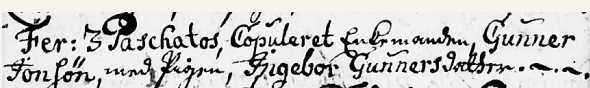 Fer: 3 Paschatos, Copuleret Enkemanden, Gunner
Jonsøn, med Pigen, Ingebor Gunnersdatter.